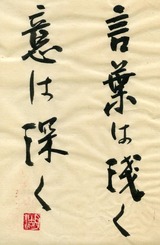 言葉は浅く
意は深く